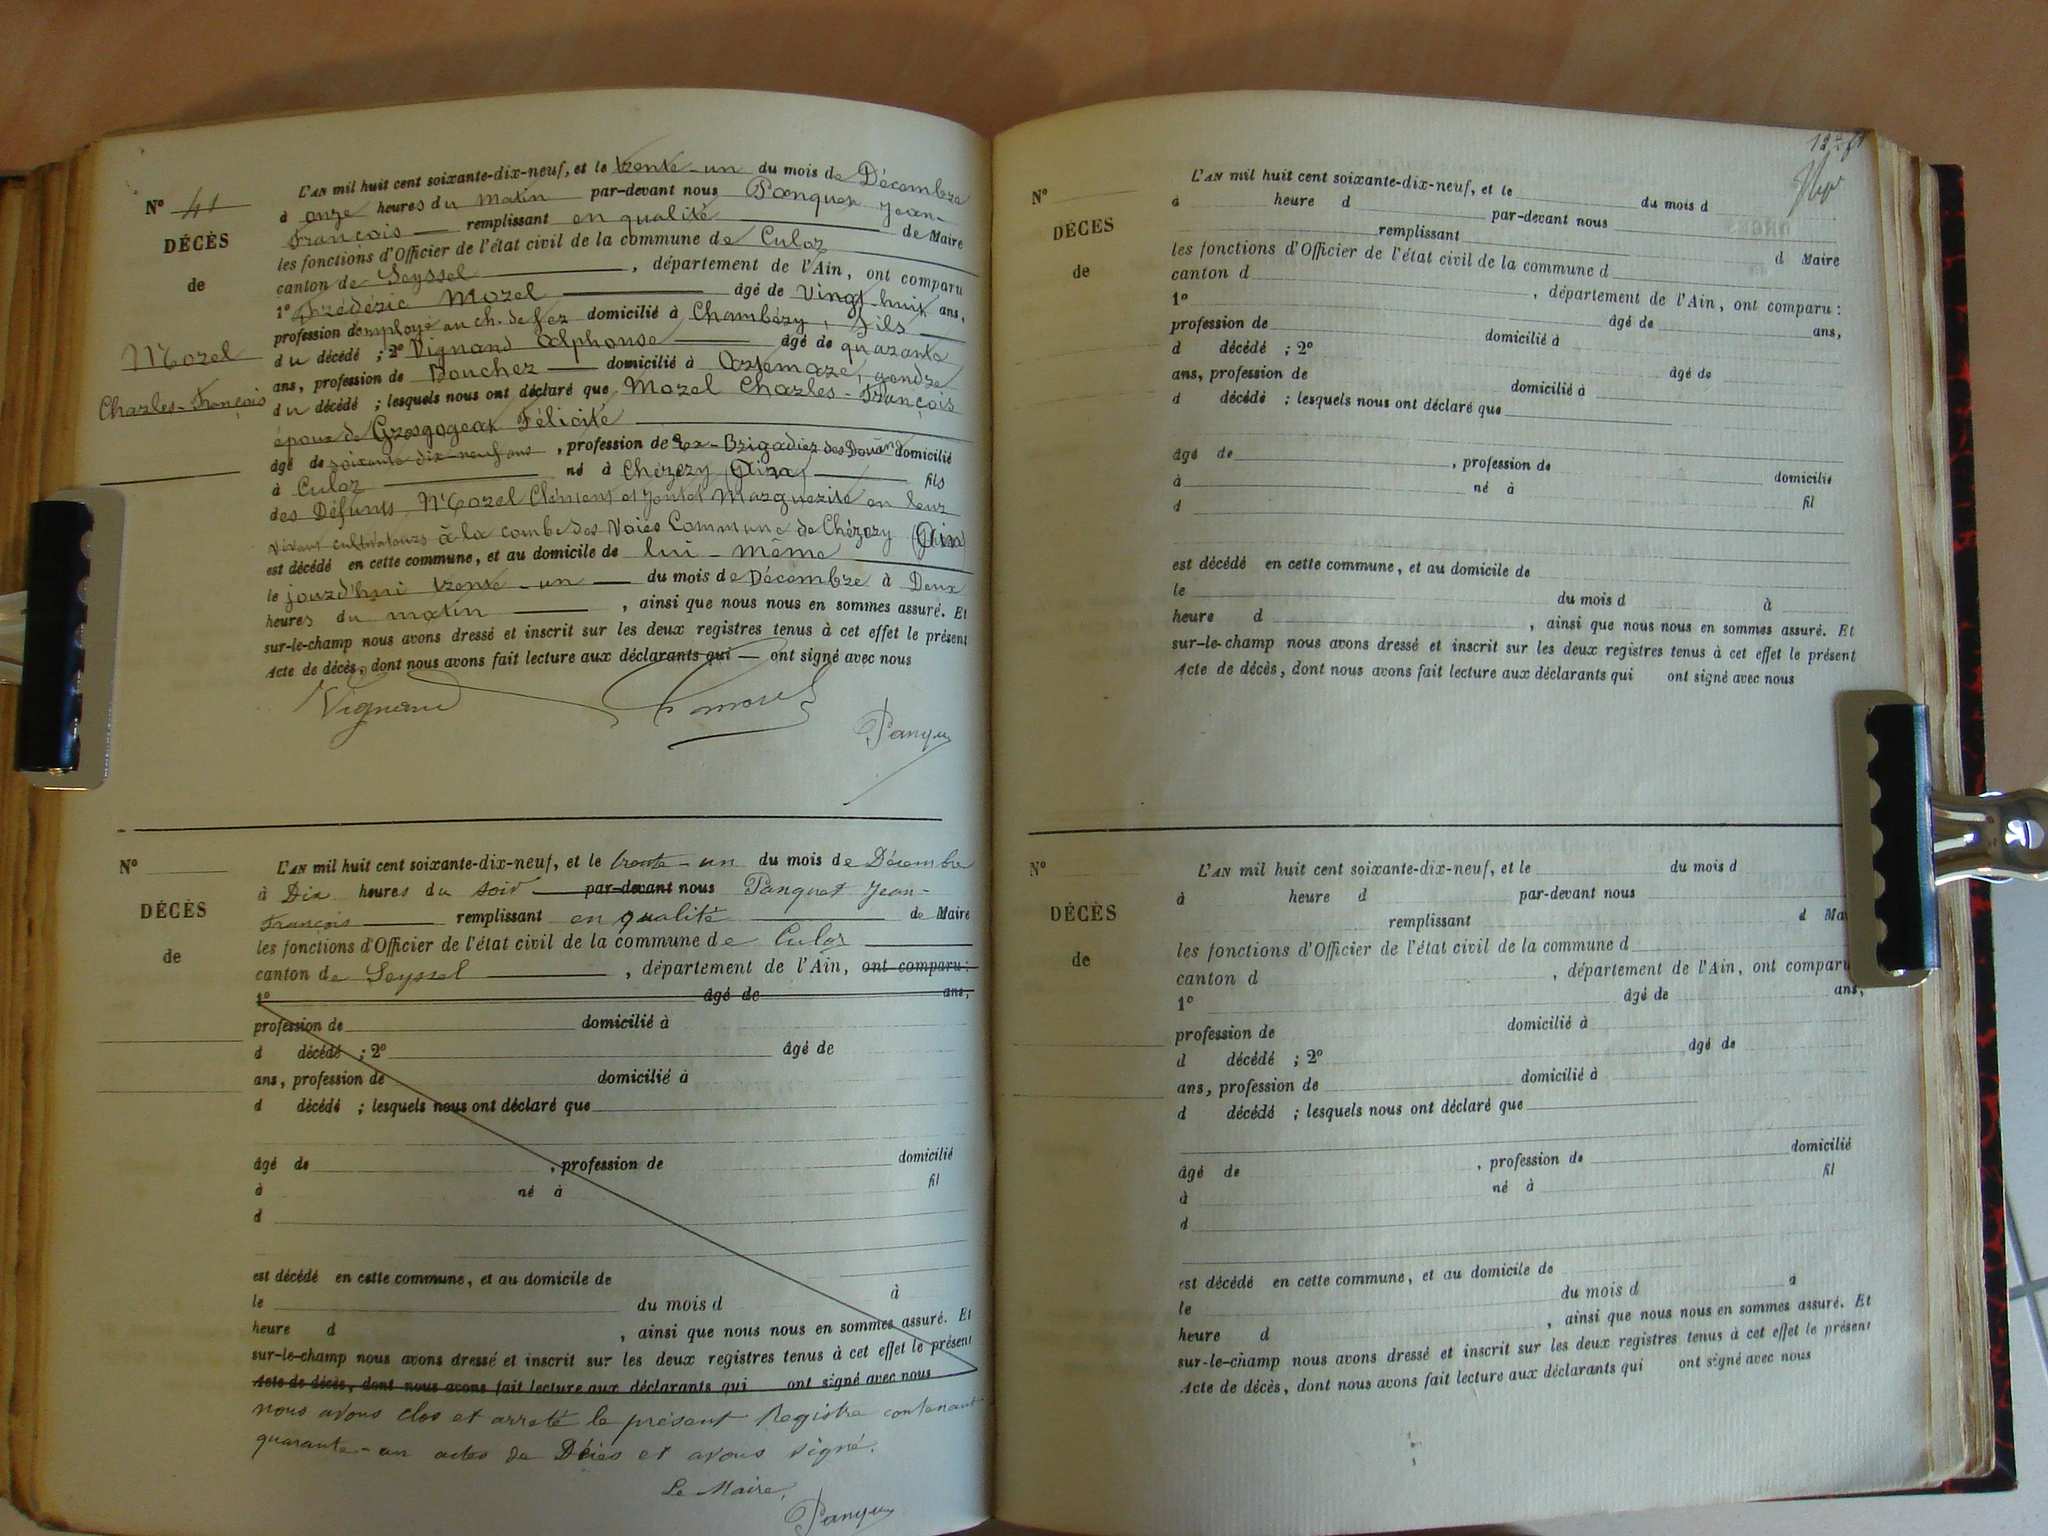 N° 41
DÉCÈS
de
Morel
Charles-François
L'AN mil huit cent soixante-dix-neuf, et le trente-un du mois de Décembre
à onze heures du matin par-devant nous Panquet Jean-
François remplissant en qualité de Maire
les fonctions d'Officier de l'état civil de la commune de Culoz
canton de Seyssel, département de l'Ain, ont comparu
1° Frédéric Morel âgé de vingt-huit ans,
profession de employé au ch. de fer domicilié à Chambéry, fils
du décédé ; 2° Vignand Alphonse âgé de quarante
ans, profession de Boucher domicilié à Artemare, gendre
du décédé ; lesquels nous ont déclaré que Morel Charles-François
époux de Grosgogeat Félicité
âgé de soixante dix-neuf ans, profession de Ex-Brigadier des Douanes domicilié
à Culoz né à Chézery (Ain) fils
des Défunts Morel Clément et Marguerite en leur
vivant cultivateurs à la combe des Voies Commune de Chézery (Ain)
est décédé en cette commune, et au domicile de lui-même
le jourd'hui trente-un du mois de Décembre à Deux
heures du matin, ainsi que nous nous en sommes assuré. Et
sur-le-champ nous avons dressé et inscrit sur les deux registres tenus à cet effet le présent
Acte de décès, dont nous avons fait lecture aux déclarants qui — ont signé avec nous
Vignand Morel
Panquet
N°
DÉCÈS
de
L'AN mil huit cent soixante-dix-neuf, et le trente-un du mois de Décembre
à Dix heures du soir par-devant nous Panquet Jean-
François remplissant en qualité de Maire
les fonctions d'Officier de l'état civil de la commune de Culoz
canton de Seyssel, département de l'Ain, ont comparu :
1° âgé de ans,
profession de domicilié à
d décédé ; 2° âgé de
ans, profession de domicilié à
d décédé ; lesquels nous ont déclaré que
âgé de , profession de domicilié
à né à fil
d
est décédé en cette commune, et au domicile de
le du mois d à
heure d , ainsi que nous nous en sommes assuré. Et
sur-le-champ nous avons dressé et inscrit sur les deux registres tenus à cet effet le présent
Acte de décès, dont nous avons fait lecture aux déclarants qui ont signé avec nous
nous avons clos et arreté le présent Registre contenant
quarante-un actes de Décès et avons signé.
Le Maire,
Panquet
N°
DÉCÈS
de
L'AN mil huit cent soixante-dix-neuf, et le du mois d
à heure d par-devant nous
remplissant d Maire
les fonctions d'Officier de l'état civil de la commune d
canton d , département de l'Ain, ont comparu :
1° âgé de ans,
profession de domicilié à
d décédé ; 2° âgé de
ans, profession de domicilié à
d décédé ; lesquels nous ont déclaré que
âgé de , profession de domicilié
à né à fil
d
est décédé en cette commune, et au domicile de
le du mois d à
heure d , ainsi que nous nous en sommes assuré. Et
sur-le-champ nous avons dressé et inscrit sur les deux registres tenus à cet effet le présent
Acte de décès, dont nous avons fait lecture aux déclarants qui ont signé avec nous
N°
DÉCÈS
de
L'AN mil huit cent soixante-dix-neuf, et le du mois d
à heure d par-devant nous
remplissant d Mai
les fonctions d'Officier de l'état civil de la commune d
canton d , département de l'Ain, ont comparu
1° âgé de ans,
profession de domicilié à
d décédé ; 2° âgé de
ans, profession de domicilié à
d décédé ; lesquels nous ont déclaré que
âgé de , profession de domicilié
à né à fil
d
est décédé en cette commune, et au domicile de
le du mois d à
heure d , ainsi que nous nous en sommes assuré. Et
sur-le-champ nous avons dressé et inscrit sur les deux registres tenus à cet effet le présent
Acte de décès, dont nous avons fait lecture aux déclarants qui ont signé avec nous